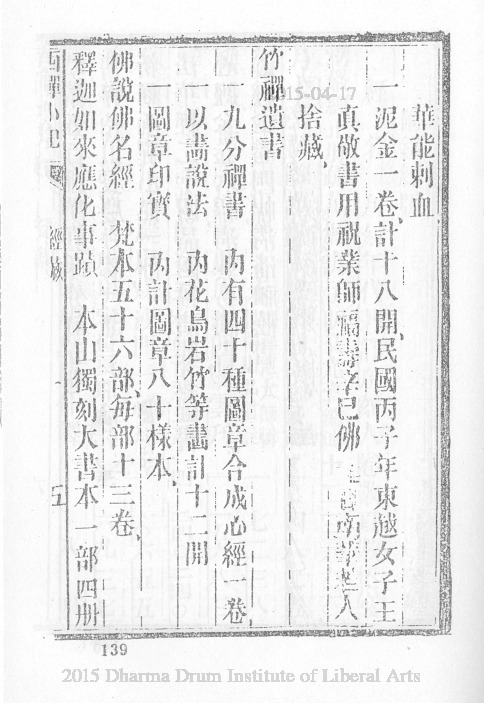 華能刺血
一泥金一卷計十八開民國丙子年東越女子王
真敬書用祝業師福壽辛巳佛
捨藏
竹禪遺書
一九分禪書　內有四十種圖章合成心經一卷
一以畵說法　內花鳥岩竹等畵計十二開
一圖章印實　內計圖章八十樣本
佛說佛名經　梵本五十六部每部十三卷
釋迦如來應化事蹟　本山獨刻大書本一部四册
經藏
五
139
2015-04-17
2015 Dharma Drum Institute of Liberal Arts